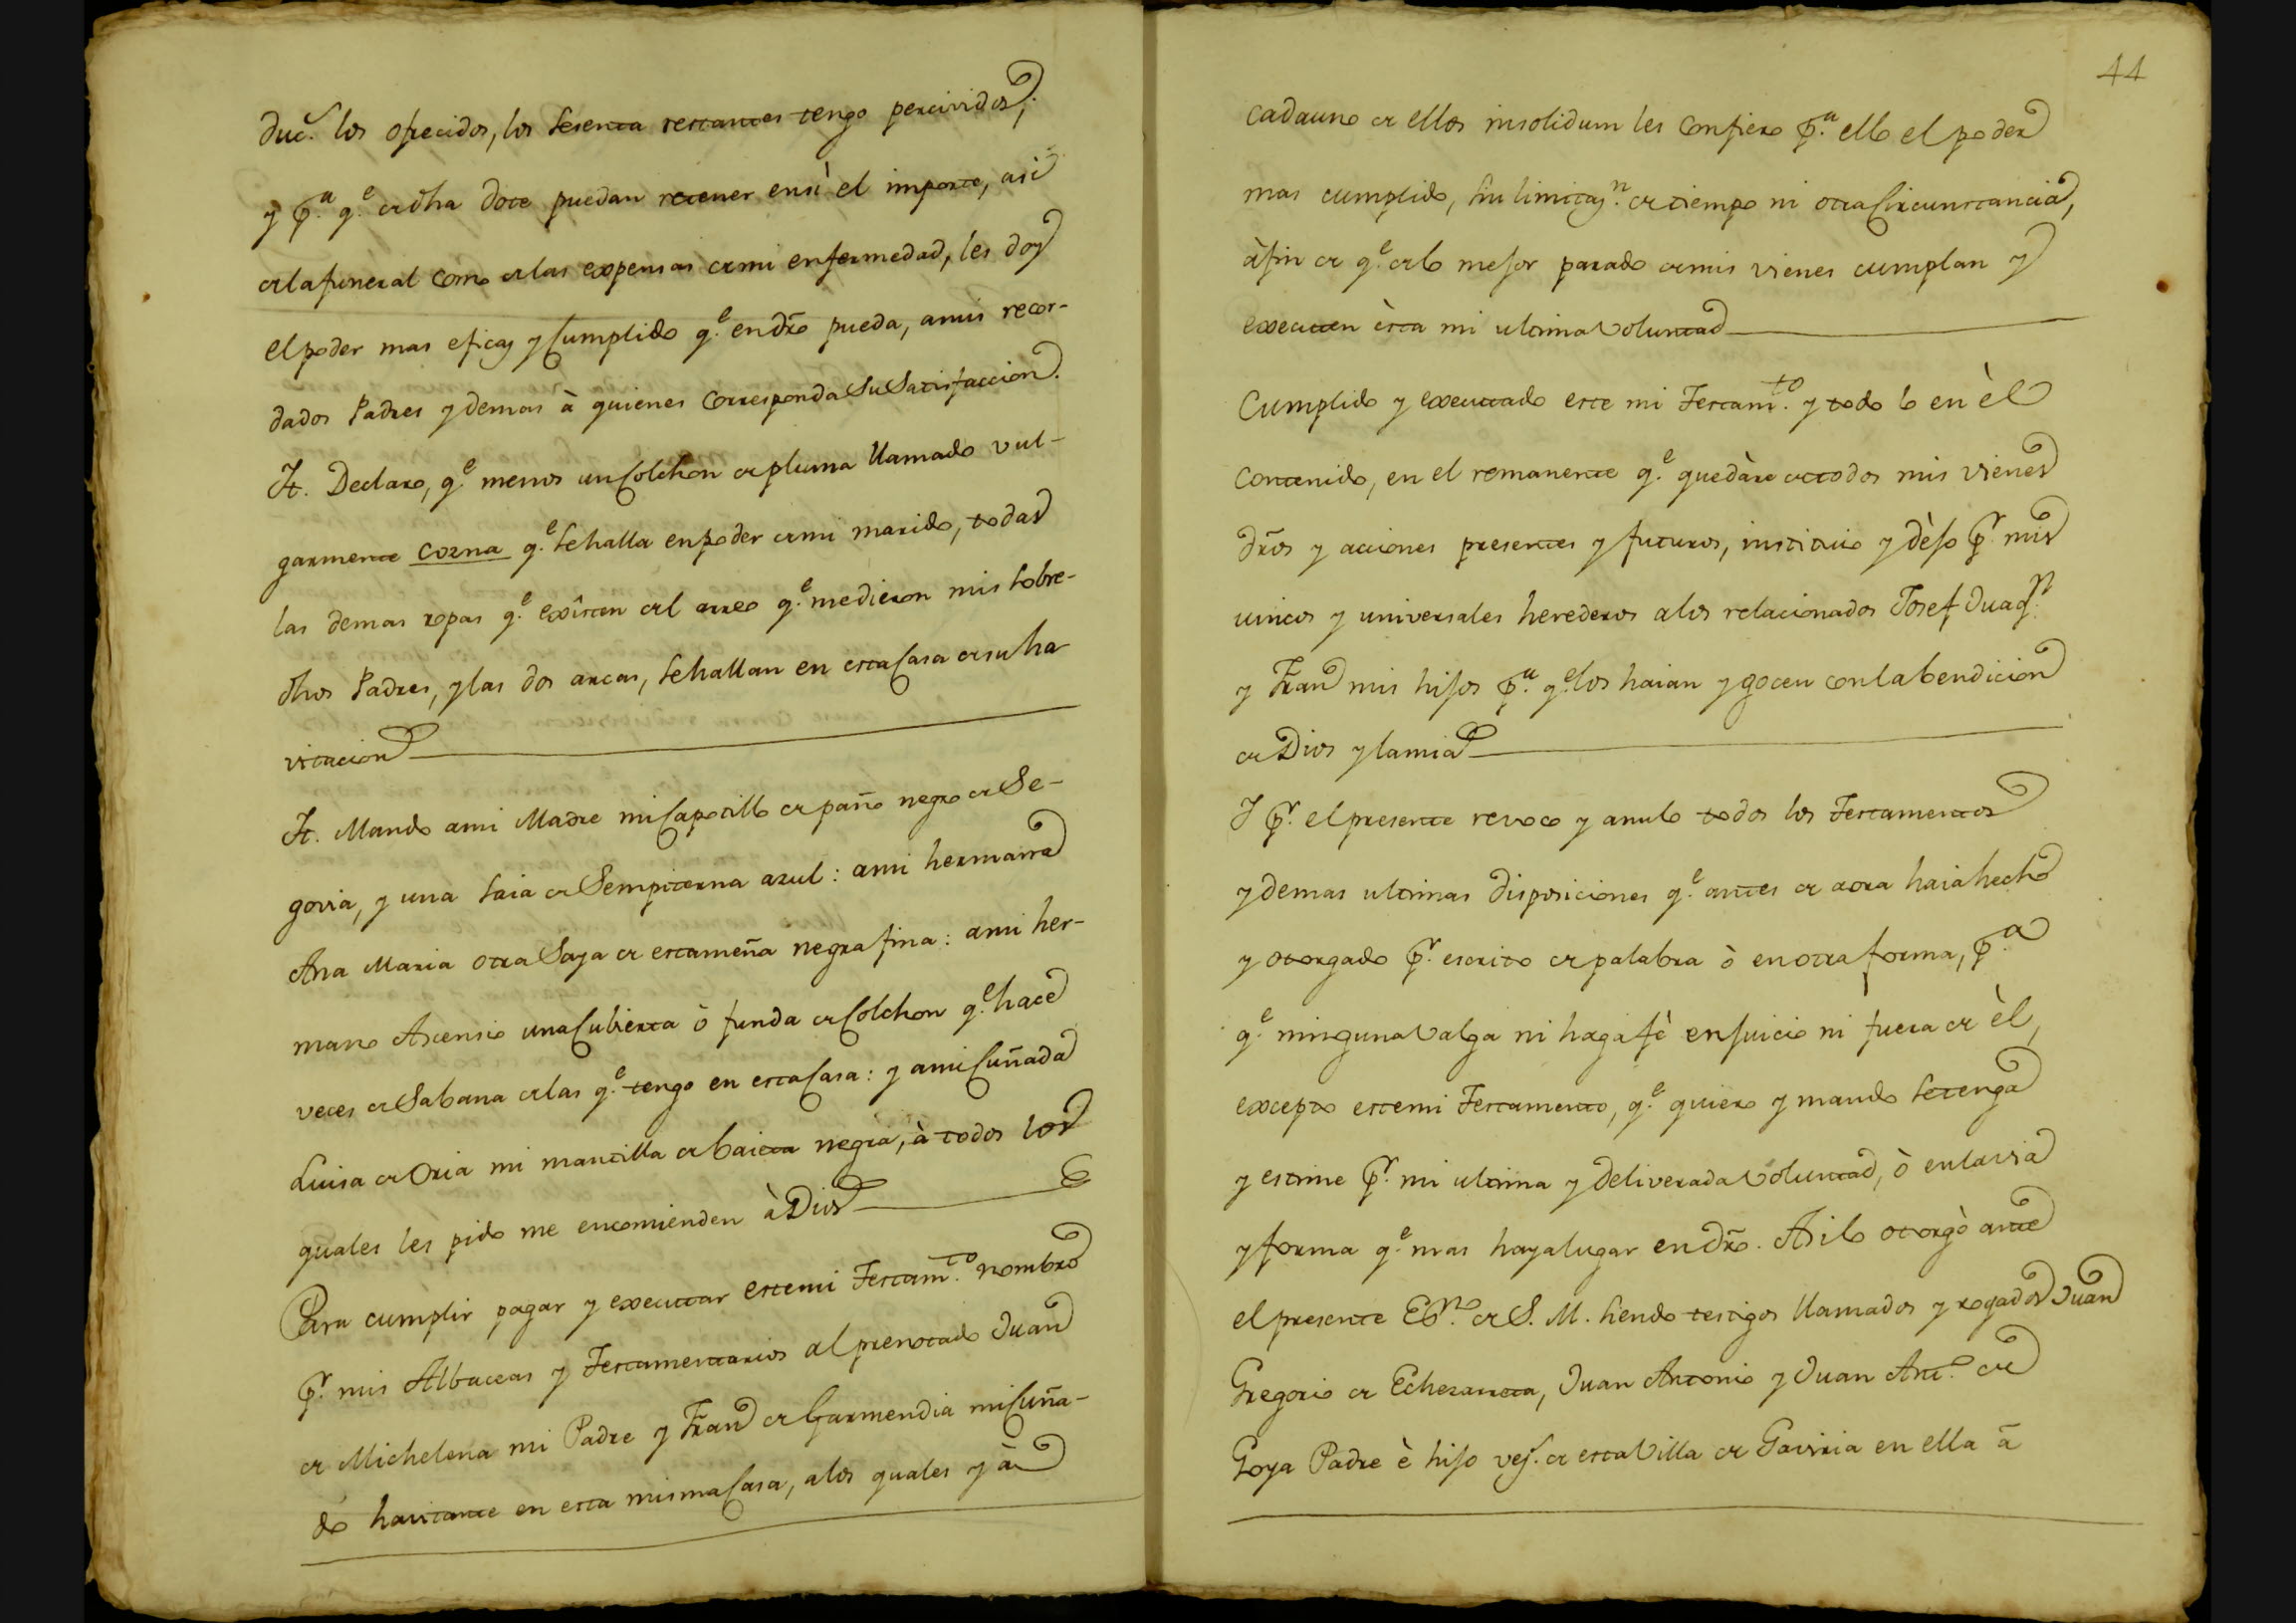 duc.s los ofrecidos, los sesenta restantes tengo percividos;
y p.a q.e de dha dote puedan retener en sì el importe, asi
de la funeral como de las expensas de mi enfermedad, les doy
el poder mas eficaz y Cumplido q.e en dro pueda, a mis recor-
dados Padres y demas à quienes Corresponda Su Satisfaccion.
It. Declaro, q.e menos un Colchon de pluma llamado vul-
garmente cozna q.e se halla en poder de mi marido, todas
las demas ropas q.e exîsten del arreo q.e me dieron mis sobre-
dhos Padres, y las dos arcas, se hallan en esta Casa de su ha
vitacion
It. Mando a mi Madre mi Capotillo de paño negro de Se-
govia, y una saia de Sempiterna azul: a mi hermana
Ana Maria otra Saya de estameña negra fina: a mi her-
mano Ascensio una Cubierta ò funda de Colchon q.e hace
veces de Sabana de las q.e tengo en esta Casa: y a mi Cuñada
Luisa de Oria mi mantilla de baieta negra, à todos los
quales les pido me encomienden à Dios
Para cumplir pagar y executar este mi Testam.to nombro
p.r mis Albaceas y Testamentarios al prenotado Juan
de Michelena mi Padre y Fran de Garmendia mi Cuña-
do havitante en esta misma Casa, a los quales y à
44
cada uno de ellos insolidum les Confiero p.a ello el poder
mas cumplido, sin limitaz.n de tiempo ni otra Circunstancia,
à fin de q.e de lo mejor parado de mis vienes cumplan y
executen èsta mi ultima Voluntad
Cumplido y executado este mi Testam.to y todo lo en èl
Contenido, en el remanente q.e quedàre de todos mis vienes
dros y acciones presentes y futuros, instituio y dèjo p.r mis
unicos y universales herederos a los relacionados Josef Juaq.n
y Fran mis hijos p.a q.e los haian y gocen con la bendicion
de Dios y la mia
Y p.r el presente revoco y anulo todos los Testamentos
y demas ultimas disposiciones q.e antes de aora haia hecho
y otorgado p.r escrito de palabra ò en otra forma, p.a
q.e ninguna Valga ni haga fè en juicio ni fuera de èl,
excepto este mi Testamento, q.e quiero y mando se tenga
y estime p.r mi ultima y deliverada Voluntad, ò en la via
y forma q.e mas haya lugar en dro. Asi lo otorgò ante
el presente Es.no de S. M. siendo testigos llamados y rogados Juan
Gregorio de Echezarreta, Juan Antonio y Juan Ant.o de
Goya Padre è hijo vez.s de esta Villa de Gaviria en ella ã